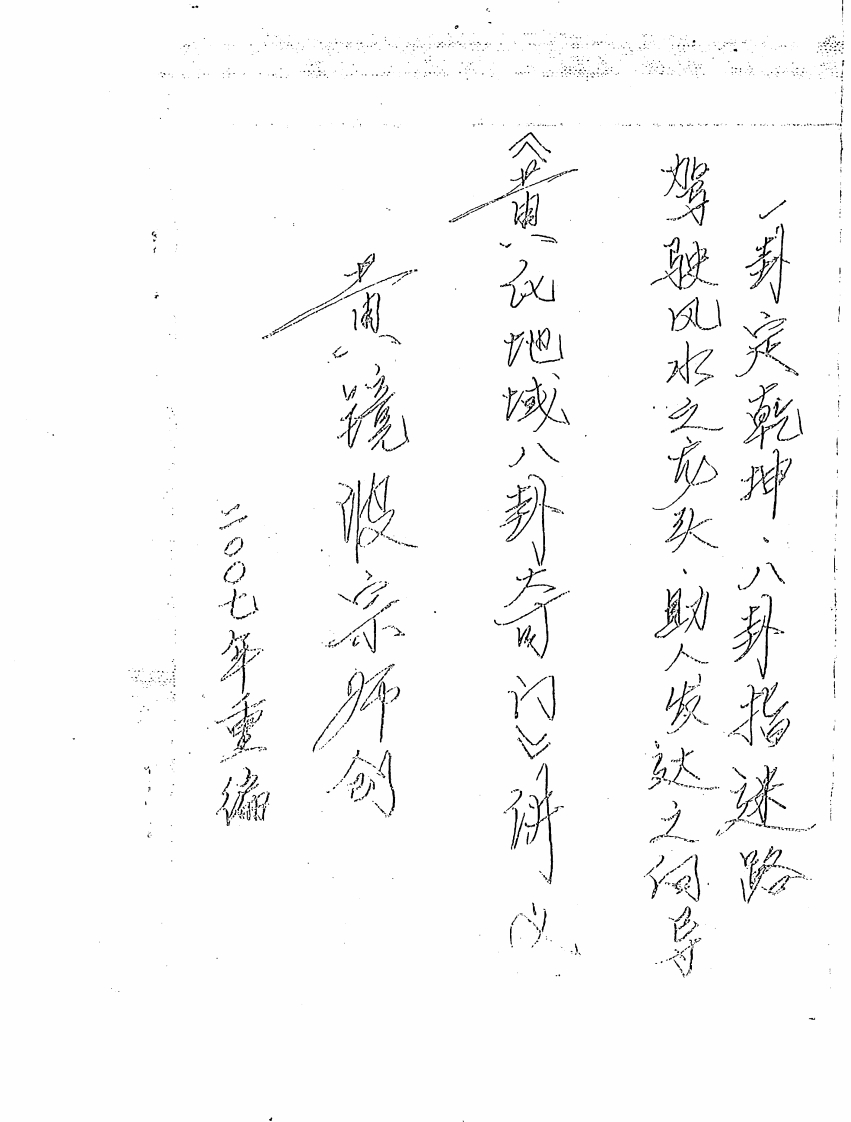 一卦定乾坤·八卦指迷路
驾驶风水之龙头·助人发达之向导
《黄氏地域八卦奇门》讲义
黄镜波宗师创
二〇〇七年重编